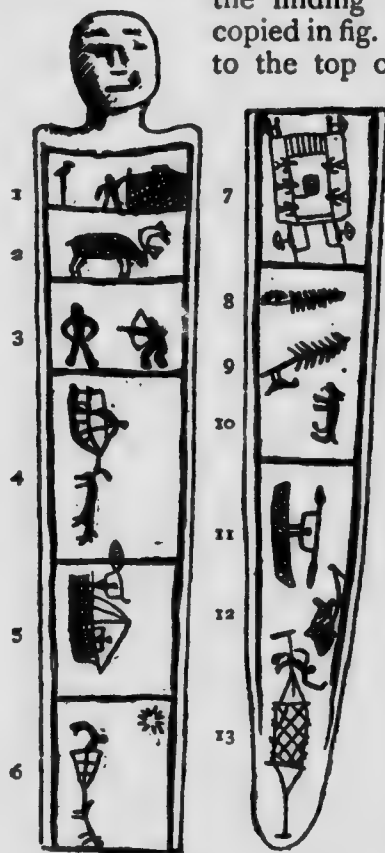 the finding
copied in fig.
to the top c
1
2
3
4
5
6
7
8
9
10
11
12
13